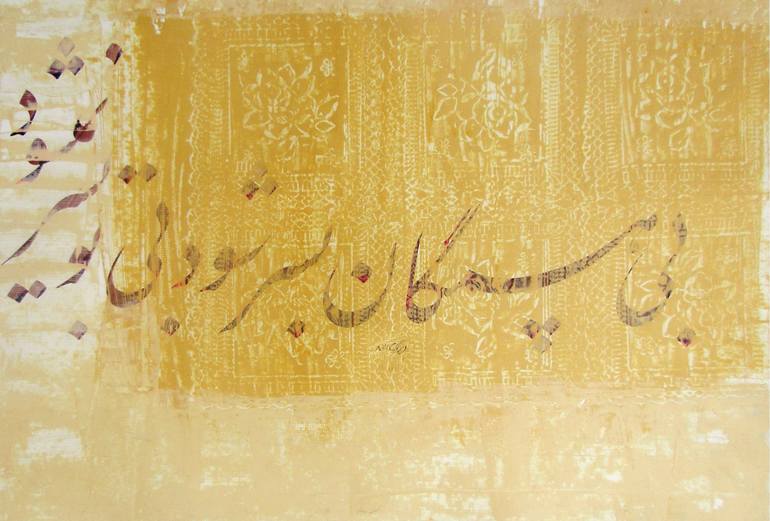 بی همگان بسر شود بی
تو بسر نمیشود